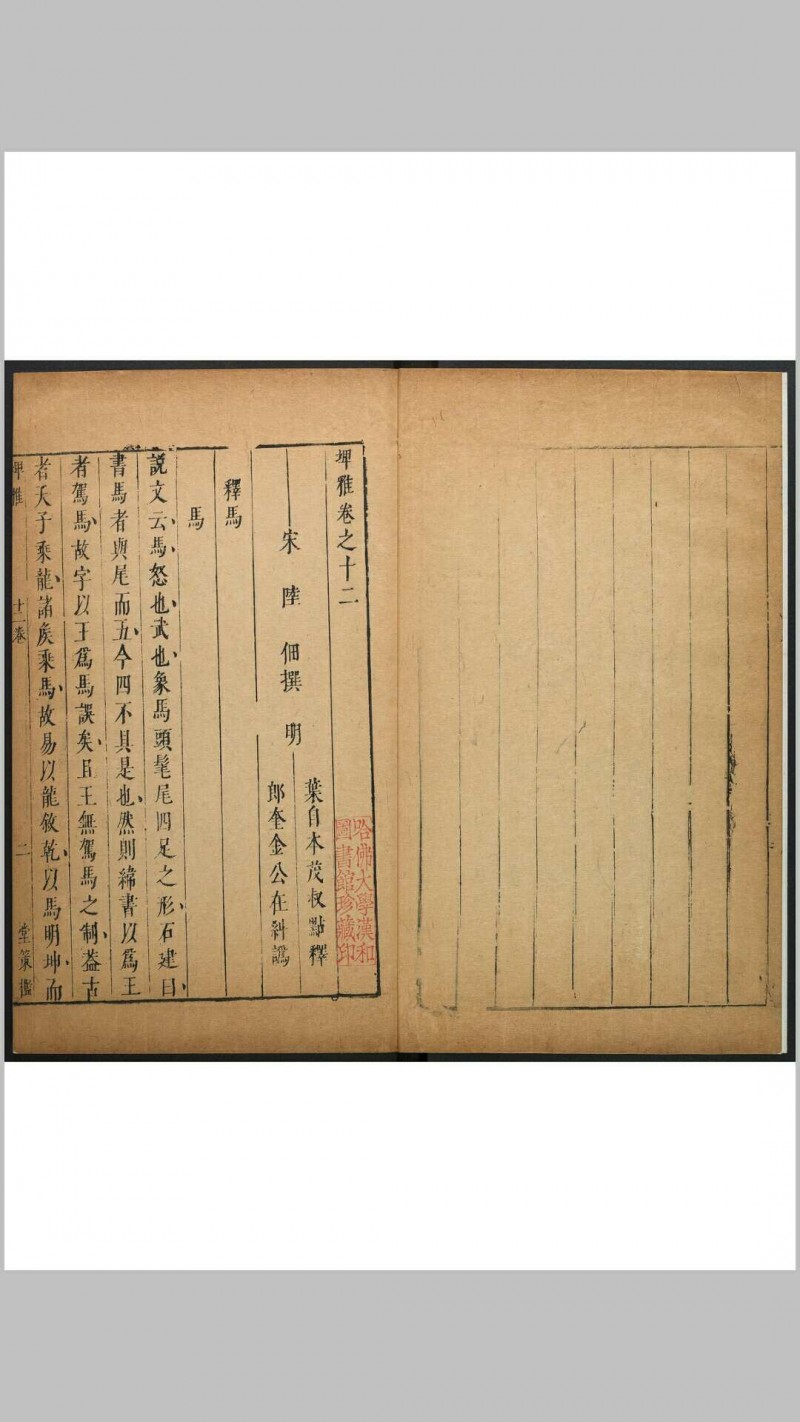 埤雅卷之十二
宋 陸 佃撰 明
葉自本茂叔㸃釋
郎奎金公在糾譌
釋馬
馬
説文云馬怒也武也象馬頭髦尾四足之形石建曰
書馬者與尾而五今四不具是也然則緯書以爲王
者駕馬故字以王爲馬誤矣且王無駕馬之制葢古
者天子乘龍諸矦乘馬故易以龍敘乾以馬明坤而
埤雅 十二卷 二 堂策檻
哈佛大學漢和
圖書館珍藏印